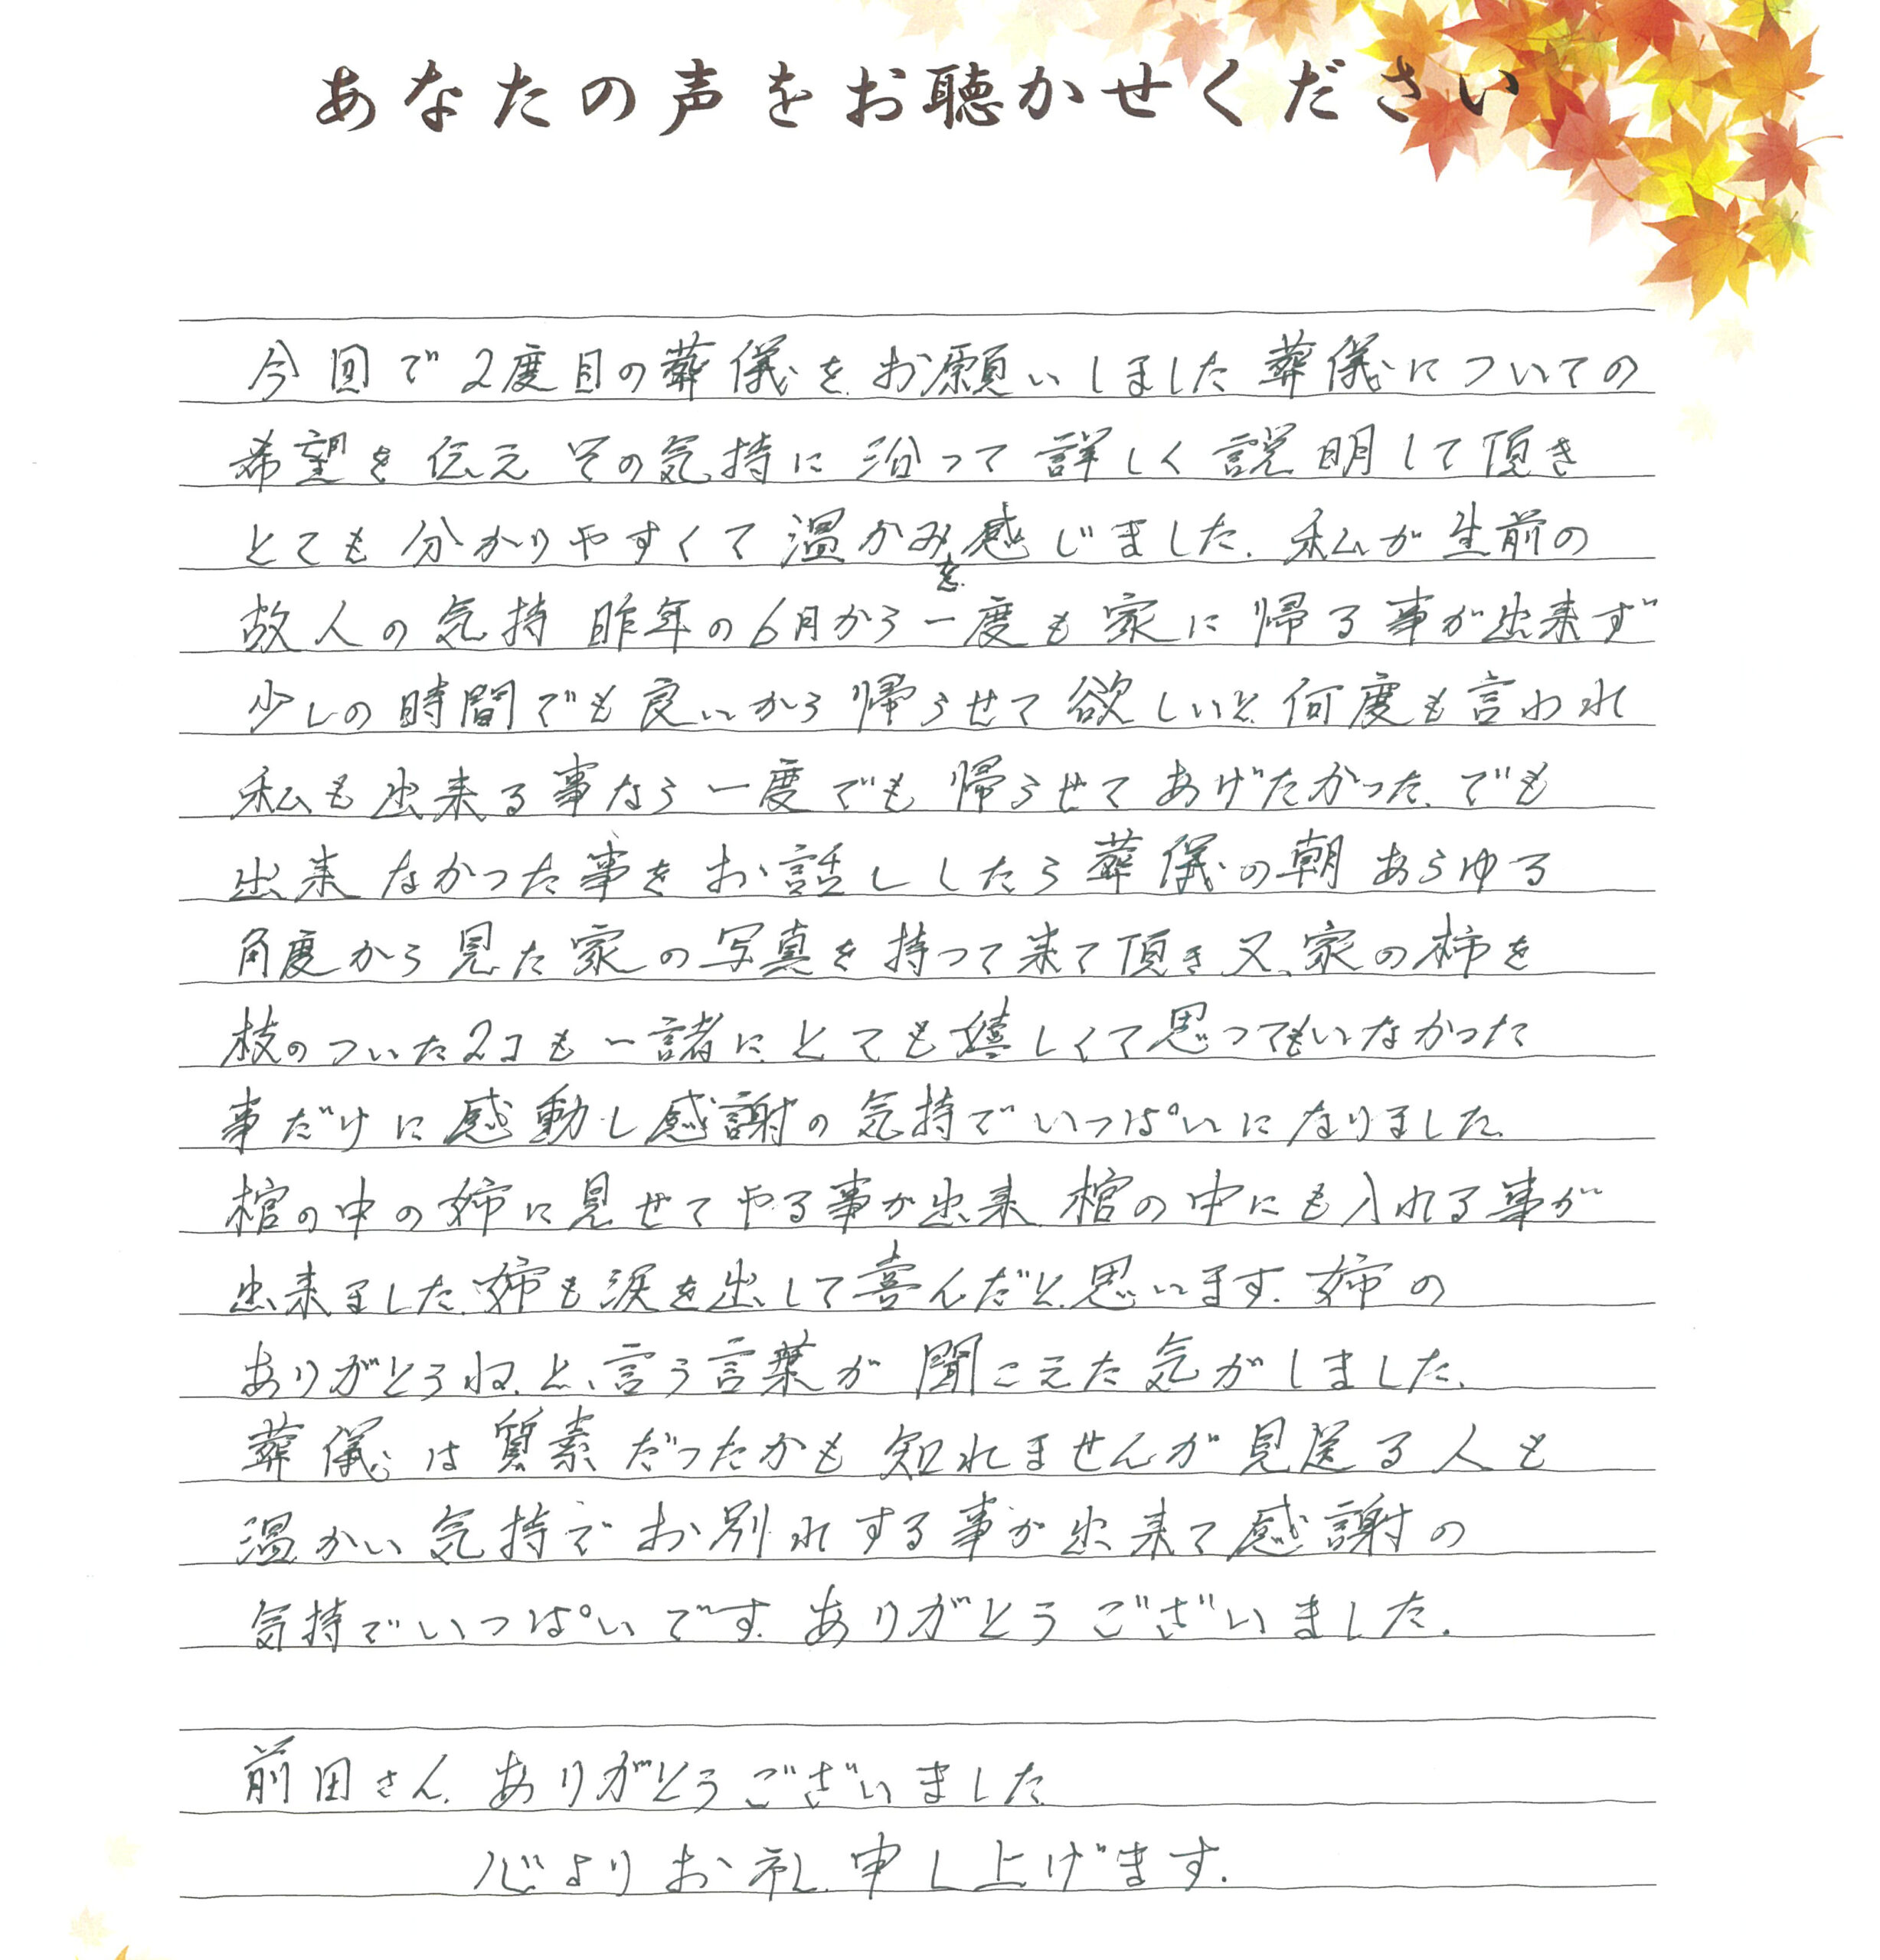 あなたの声をお聴かせください
今回で2度目の葬儀をお願いしました葬儀についての
希望を伝えその気持に沿って詳しく説明して頂き
とても分かりやすくて温かみを感じました。私が生前の
故人の気持 昨年の6月から一度も家に帰る事が出来ず
少しの時間でも良いから帰らせて欲しいと何度も言われ
私も出来る事なら一度でも帰らせてあげたかった。でも
出来なかった事をお話ししたら葬儀の朝あらゆる
角度から見た家の写真を持って来て頂き又、家の柿を
枝のついた2コも一諸に。とても嬉しくて思ってもいなかった
事だけに感動し感謝の気持でいっぱいになりました。
棺の中の姉に見せてやる事が出来 棺の中にも入れる事が
出来ました。姉も涙を出して喜んだと思います。姉の
ありがとうね。と、言う言葉が聞こえた気がしました。
葬儀は質素だったかも知れませんが見送る人も
温かい気持でお別れする事が出来て感謝の
気持でいっぱいです。ありがとうございました。
前田さん。ありがとうございました
心よりお礼申し上げます。